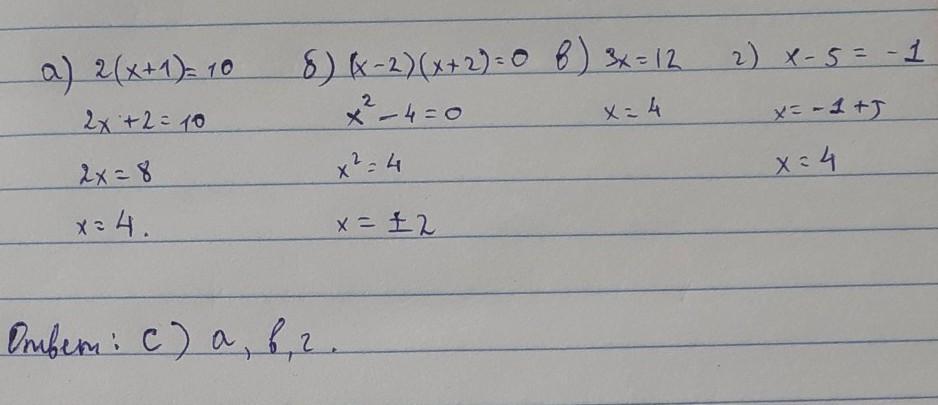 а) 2(x+1)=10 б) (x-2)(x+2)=0 в) 3x=12 г) x-5=-1
2x+2=10 x²-4=0 x=4 x=-1+5
2x=8 x²=4 x=4
x=4. x=±2
Ответ: С) а, в, г.